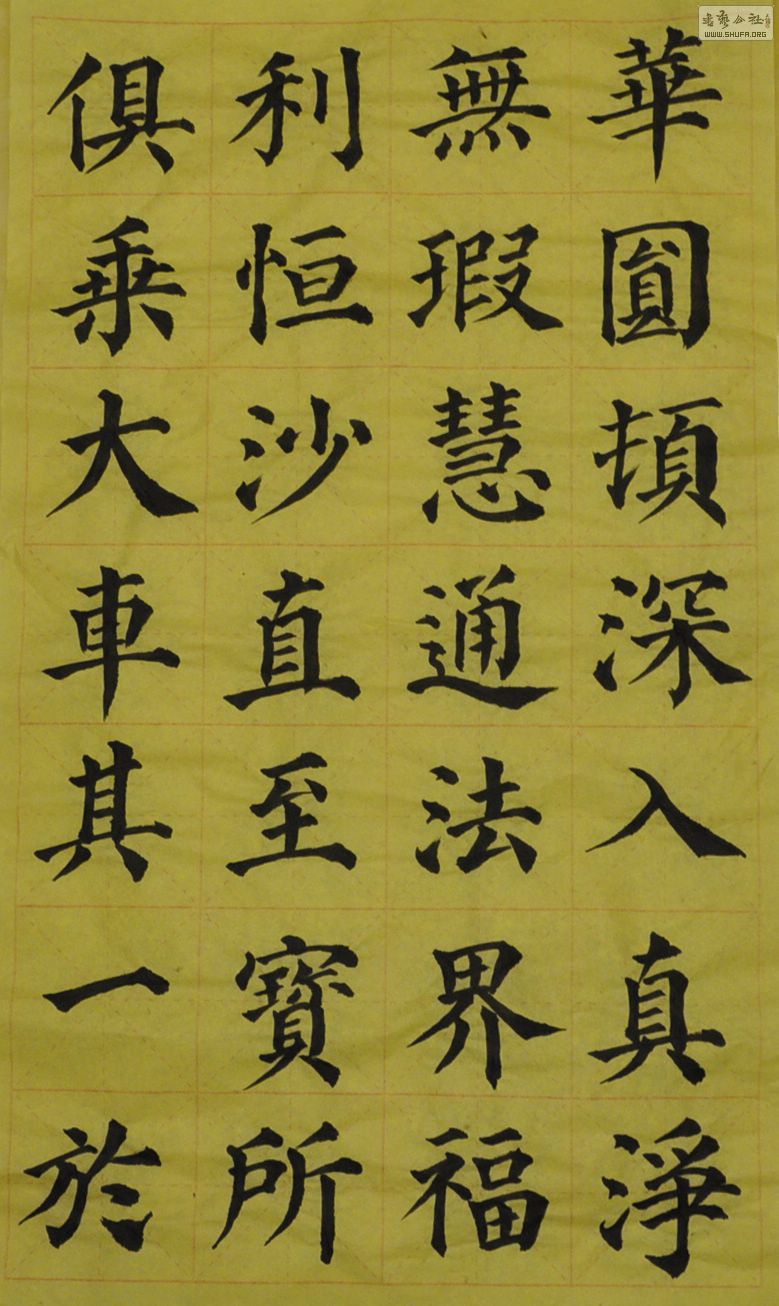 華圓頓深入真淨
無瑕慧通法界福
利恒沙直至寶所
俱乗大車其一於
書藝公社
WWW.SHUFA.ORG